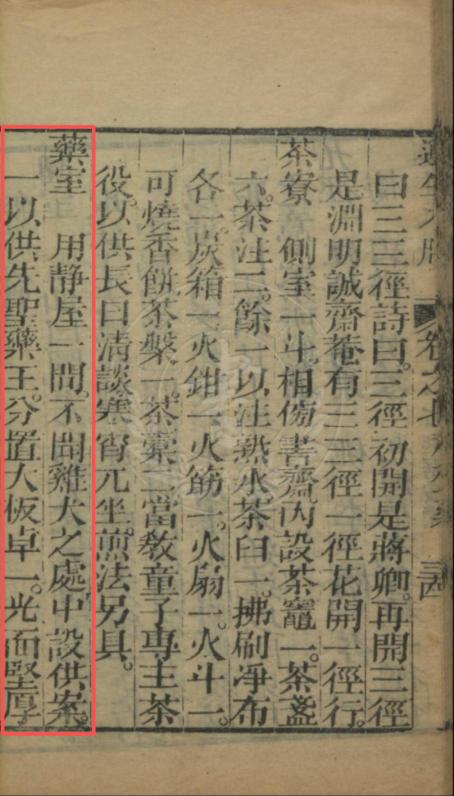 遵生八牋 卷之七 三四
曰三三徑詩曰。三徑初開是蔣卿。再開三徑
是淵明誠齋菴有三三徑一徑花開一徑行。
茶寮 側室一斗。相傍書齋。內設茶竈一。茶盞
六。茶注二。餘一以注熟水。茶臼一。拂刷凈布
各一。炭箱一。火鉗一。火筯一。火扇一。火斗一。
可燒香餅。茶槃一。茶橐二。當教童子專主茶
役。以供長日清談。寒宵兀坐。煎法另具。
藥室 用靜屋一間。不聞雞犬之處。中設供案。
一以供先聖藥王。分置大板卓一。光面堅厚